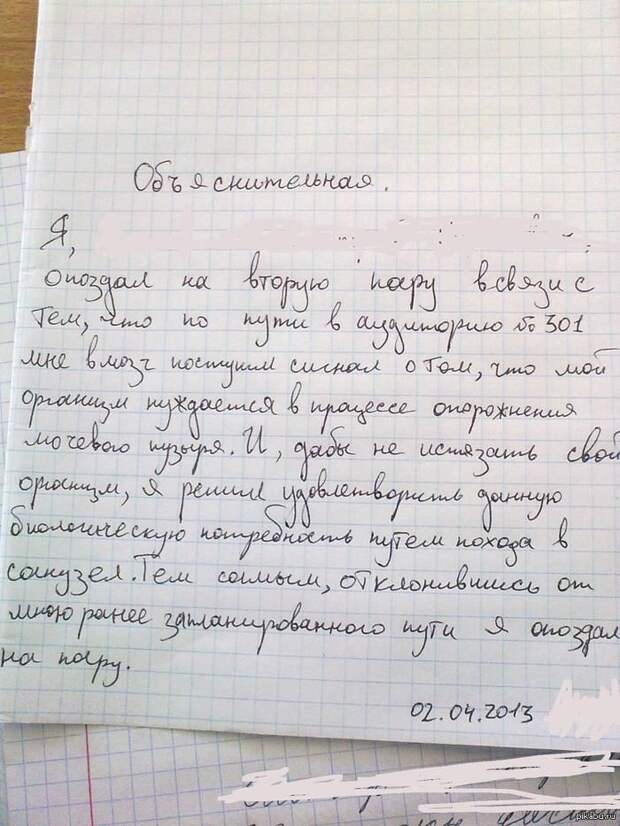 Объяснительная.
Я,
опоздал на вторую пару в связи с
тем, что по пути в аудиторию 301
мне в мозг поступил сигнал о том, что мой
организм нуждается в процессе опорожнения
мочевого пузыря. И, дабы не истязать свой
организм, я решил удовлетворить данную
биологическую потребность путем похода в
санузел. Тем самым, отклонившись от
мною ранее запланированного пути я опоздал
на пару.
02.04.2013
pikabu.ru